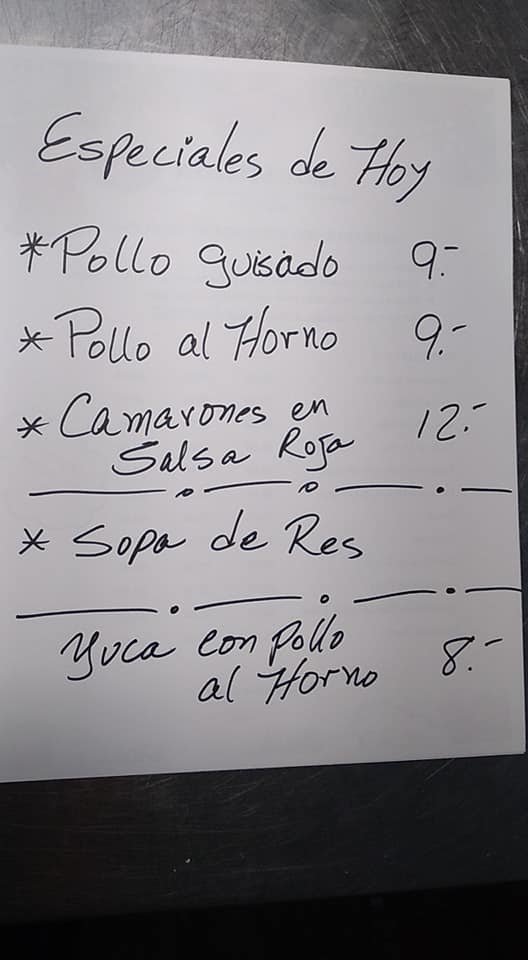 Especiales de Hoy
* Pollo guisado 9.-
* Pollo al Horno 9.-
* Camarones en 12.-
Salsa Roja
* Sopa de Res
Yuca con Pollo 8.-
al Horno